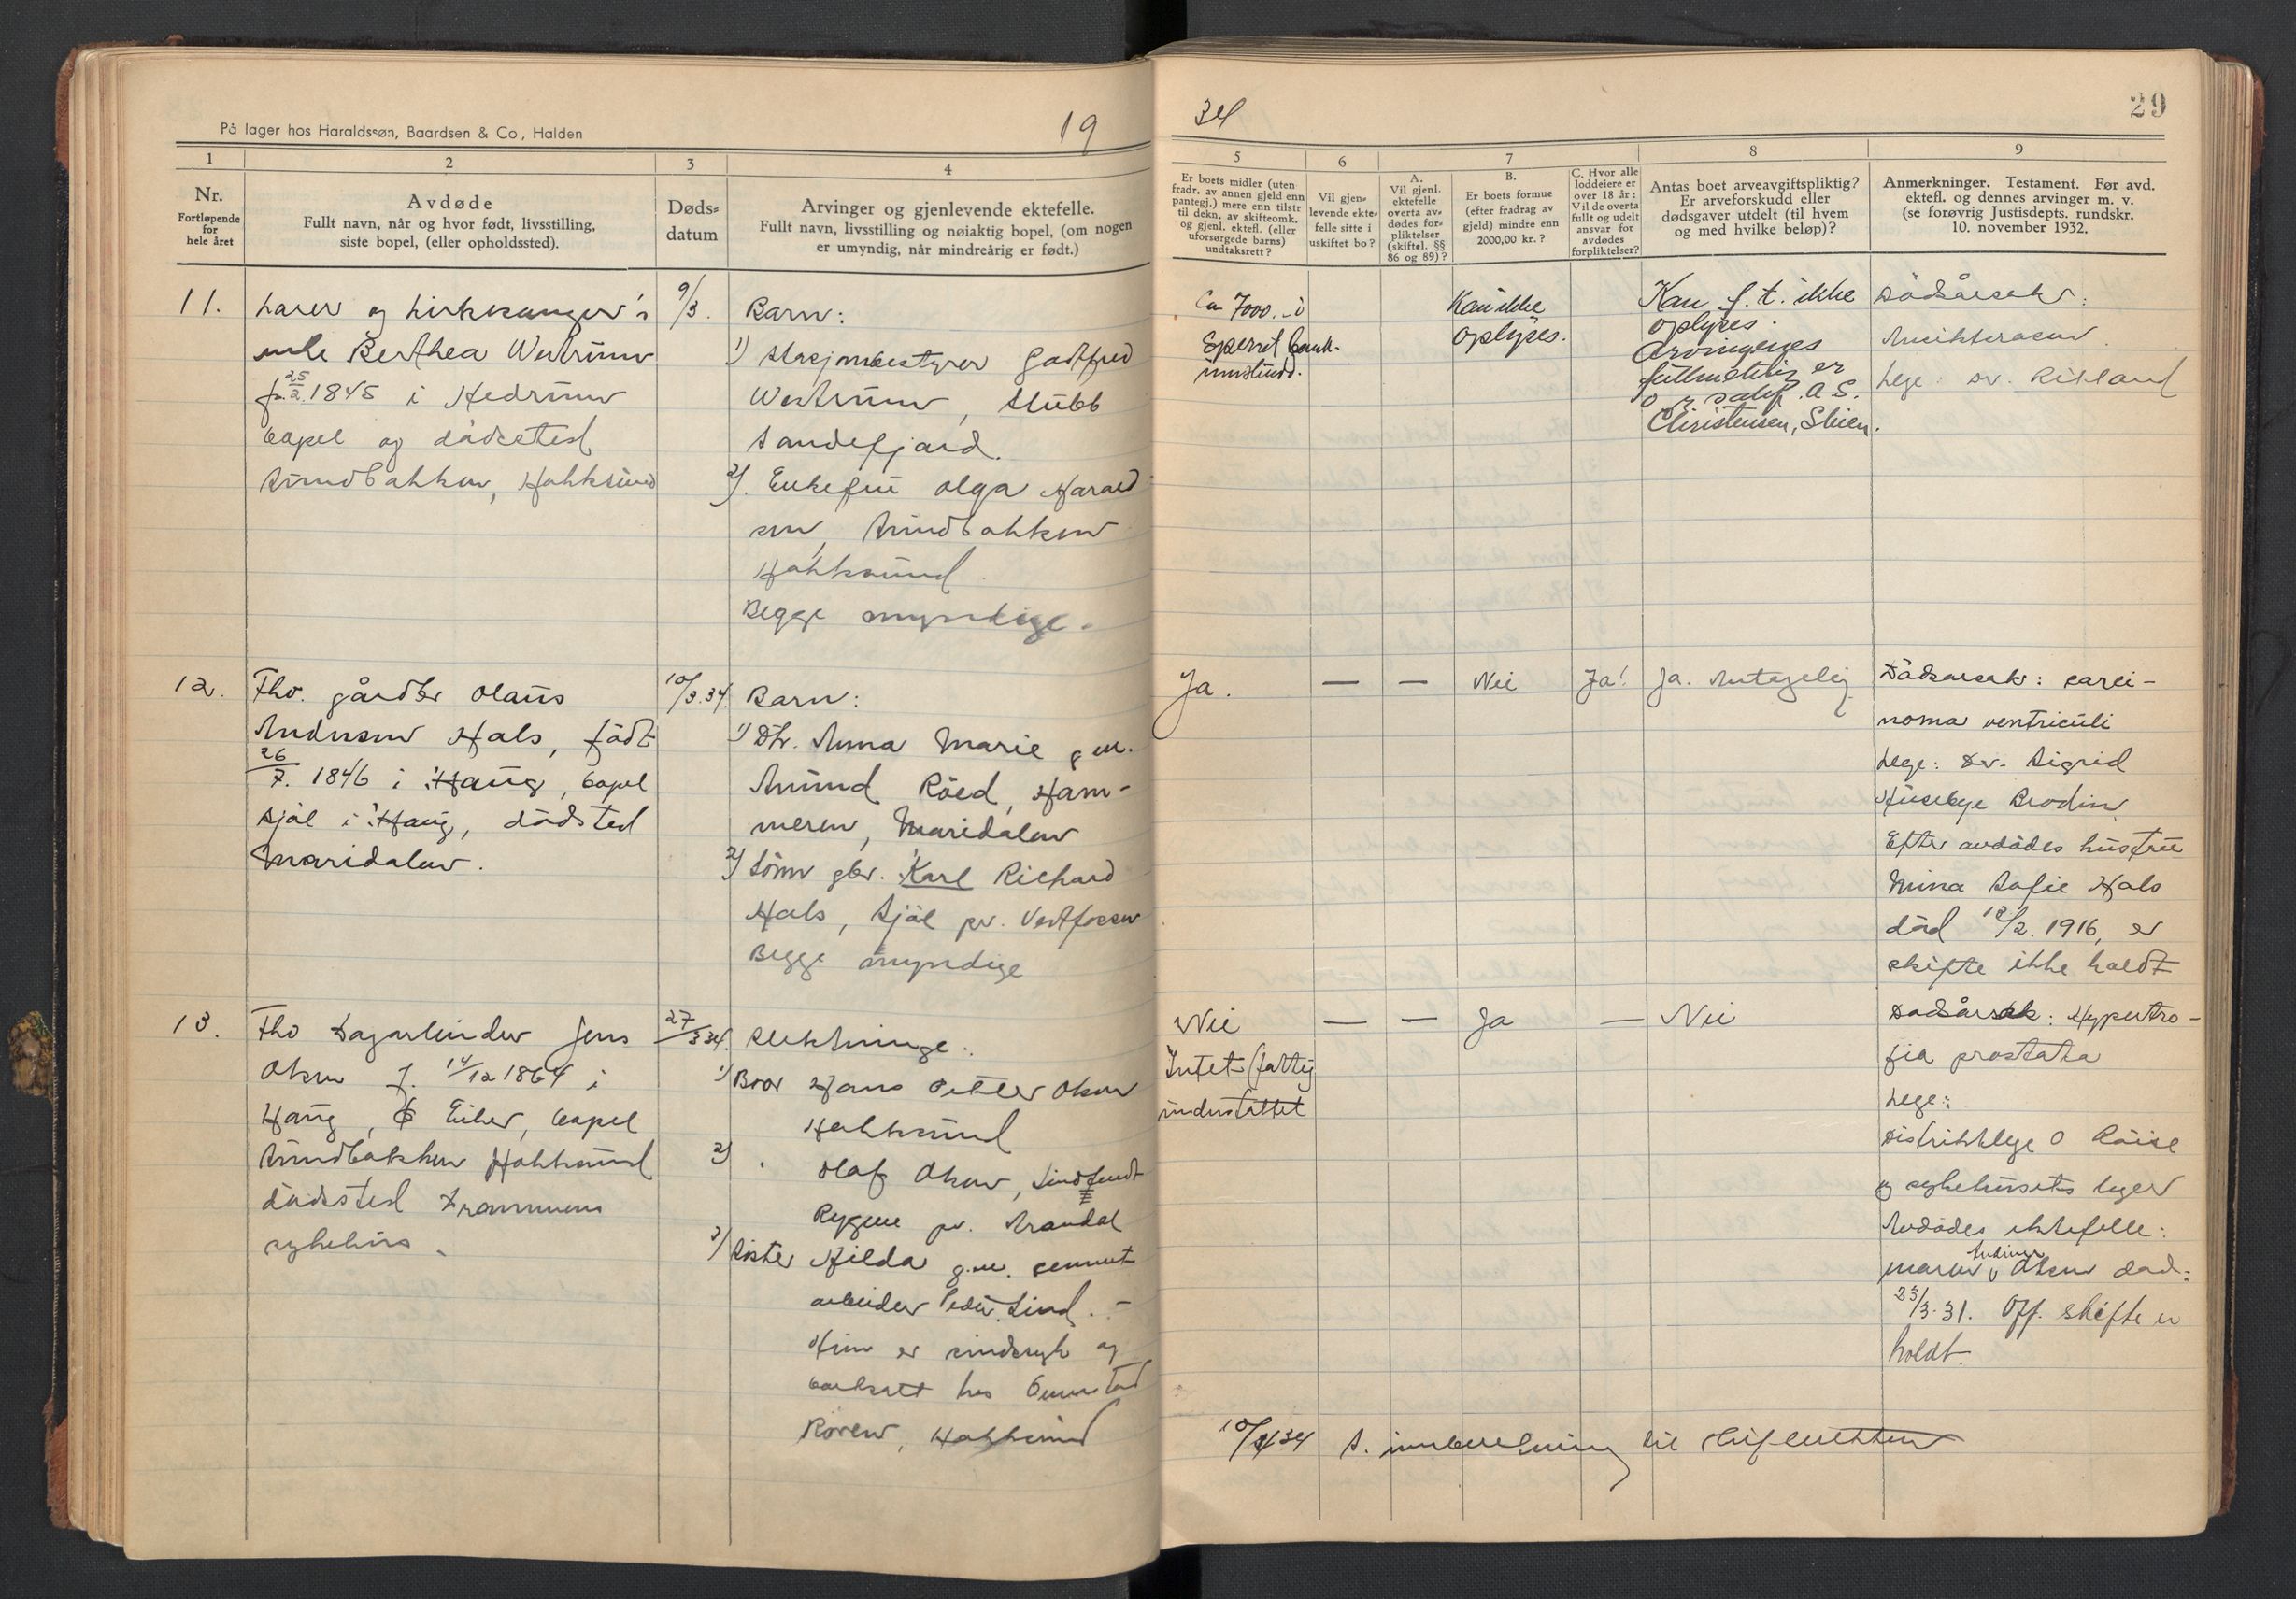 På lager hos Haraldssøn, Baardsen & Co, Halden
19
34
29
1
2
3
4
5
6
7
8
9
Nr.
Fortløpende
for
hele året
Avdøde
Fullt navn, når og hvor født, livsstilling,
siste bopel, (eller opholdssted).
Døds-
datum
Arvinger og gjenlevende ektefelle.
Fullt navn, livsstilling og nøiaktig bopel, (om nogen
er umyndig, når mindreårig er født.)
Er boets midler (uten
fradr. av annen gjeld enn
pantegj.) mere enn tilstr
til dekn. av skifteomk.
og gjenl. ektefl. (eller
uforsørgede barns)
undtaksrett?
Vil gjen-
levende ekte-
felle sitte i
uskiftet bo?
A.
Vil gjenl.
ektefelle
overta av-
dødes for-
pliktelser
(skiftel. §§
86 og 89)?
B.
Er boets formue
(efter fradrag av
gjeld) mindre enn
2000,00 kr.?
C. Hvor alle
loddeiere er
over 18 år:
Vil de overta
fullt og udelt
ansvar for
avdødes
forpliktelser?
Antas boet arveavgiftspliktig?
Er arveforskudd eller
dødsgaver utdelt (til hvem
og med hvilke beløp)?
Anmerkninger. Testament. Før avd.
ektefl. og dennes arvinger m. v.
(se forøvrig Justisdepts. rundskr.
10. november 1932.
11.
Lærer og kirkesanger's
enke Berthea Westrum
f. 25/2. 1845 i Hedrum
bopel og dødssted
Sundbakken, Hokksund
9/3.
Barn:
1) Stasjonsbestyrer Godtfred
Westrum, Stubb
Sandefjord.
2). Enkefru Olga Harald
sen, Sundbakken
Hokksund.
Begge myndige.
Ca 7000.- i
Sperret bank-
innskudd.
Kan ikke
oplyses.
Kan f. t. ikke
oplyses.
Arvingenes
fullmektig er
o.r.sakf. A S.
Christensen, Skien.
Dødsårsak:
Lege: Dr. Rikland
12.
Fhv. gårdbr Olaus
Andersen Hals, født
26/7. 1846 i Haug, bopel
Sjøl i Haug, dødsted
Maridalen.
10/3.34.
Barn:
1) Dtr. Anna Marie g.m.
Amund Röed, Ham-
meren, Maridalen
2) Sønn gbr. Karl Richard
Hals, Sjøl pr. Vestfossen
Begge myndige
Ja.
—
—
Nei
Ja!
Ja. Antagelig
Dødsårsak: carci-
noma ventriculi
Lege: Dr. Sigrid
Huseby Brodin
Efter avdødes hustru
Mina Sofie Hals
død 12/2. 1916, er
skifte ikke holdt
13.
Fhv Dagarbeider Jens
Olsen f. 14/12 1864 i
Haug, Ø Eiker, bopel
Sundbakken Hokksund
dødssted Drammens
sykehus.
27/3 34.
Slektninge:
1) Bror Hans Petter Olsen
Hokksund
2) " Olaf Olsen,
Rygene pr. Arendal
3) Søster Hilda g.m. cement
arbeider Peder Lind. -
Hun er sindssyk og
bortsatt hos Gunstad
Røren, Hokksund
Nei
Intet (fattig
understøttet
—
—
Ja
—
Nei
Dødsårsak: Hypertro-
fia prostata
Lege:
Distriktlege O Röise
og sykehusets leger
Avdødes ektefelle:
Maren Andine Olsen död:
23/3.31. Off. skifte er
holdt.
10/4 34 S. innberetning til skifteretten